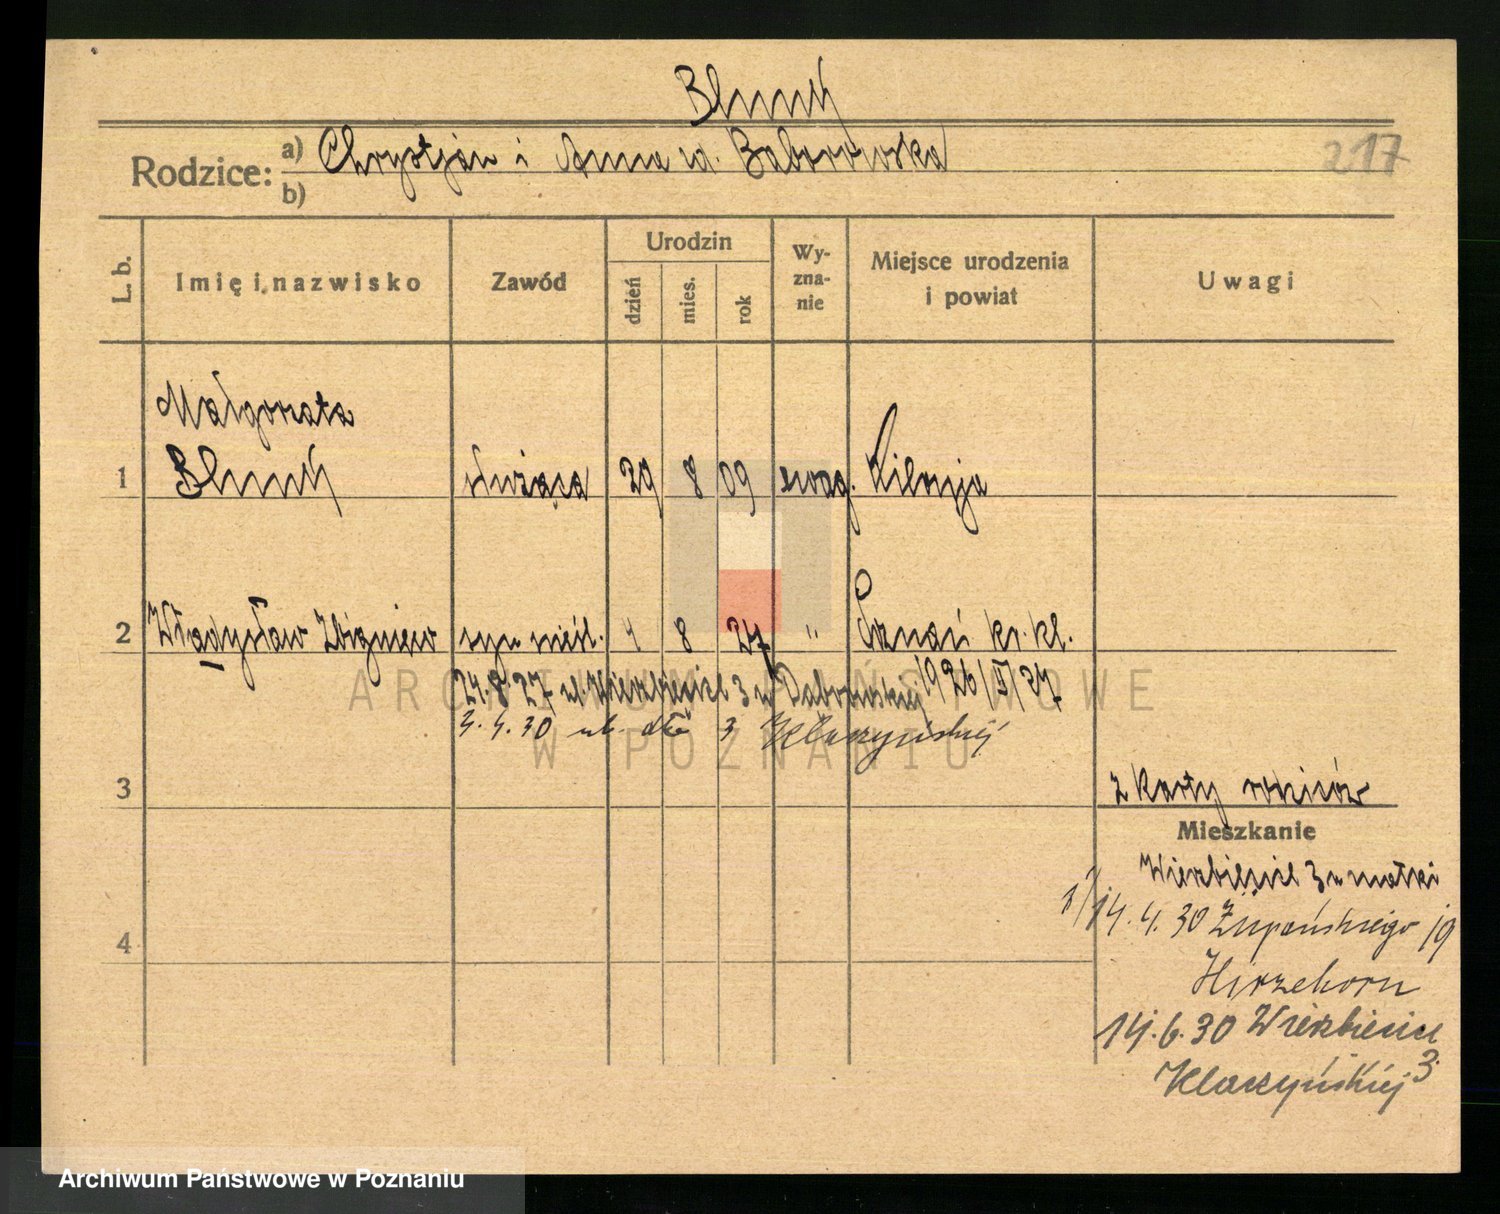 Blumś
217
Rodzice: a) Chrystjan i Anna zd. Baborowska
b)
L. b.
Imię i nazwisko
Zawód
Urodzin
dzień
mies.
rok
Wy-
zna-
nie
Miejsce urodzenia
i powiat
Uwagi
Małgorzata
1 służąca 29 8 09 ewag. Kilonja
2 Władysław Zbigniew syn nieśl. 4 8 27 " Poznań kr. kl.
24.8.27 ul. Wierzbięcice 3 u Daborowskiej 1926/II/27.
3.4.30 3 Klaczyńskiej
3
z karty rodziców
Mieszkanie
Wierzbięcice 3 u matki
14.4.30 Żupańskiego 19
4
Hirzehorn
14.6.30 Wierzbięcice
3.
Klaczyńskiej
ARCHIWUM PAŃSTWOWE
W POZNANIU
Archiwum Państwowe w Poznaniu